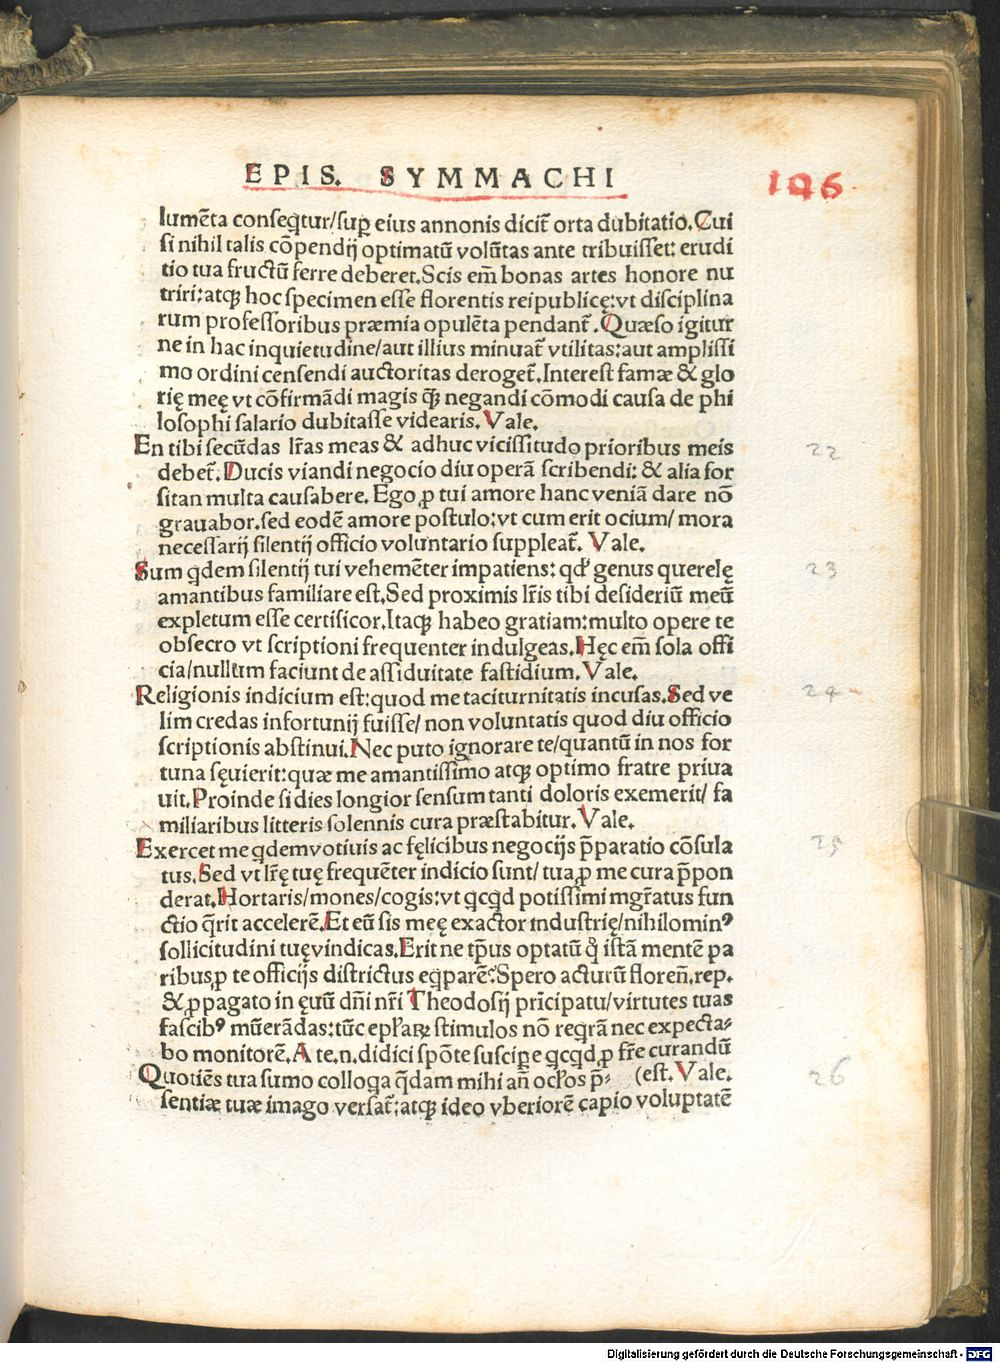 EPIS. SYMMACHI
196
lumēta conseq̄tur/suꝑ eius annonis dicit̄ orta dubitatio. Cui
si nihil talis cōpendij optimatū volūtas ante tribuisset: erudi
tio tua fructū ferre deberet. Scis em̄ bonas artes honore nu
triri: atqꝫ hoc specimen esse florentis reipublicę: vt disciplina
rum professoribus præmia opulēta pendant̄. Quæso igitur
ne in hac inquietudine/aut illius minuat̄ vtilitas: aut amplissi
mo ordini censendi auctoritas deroget̄. Interest famæ & glo
rię meę vt cōfirmādi magis qꝫ̄ negandi cōmodi causa de phi
losophi salario dubitasse videaris. Vale.
En tibi secūdas lr̄as meas & adhuc vicissitudo prioribus meis
22
debet̄. Ducis viandi negocio diu operā scribendi: & alia for
sitan multa causabere. Ego ꝓ tui amore hanc veniā dare nō
grauabor. sed eodē amore postulo: vt cum erit ocium/ mora
necessarij silentij officio voluntario suppleat̄. Vale.
Sum q̇dem silentij tui vehemēter impatiens: qđ genus querelę
23
amantibus familiare est. Sed proximis lr̄is tibi desideriū meū
expletum esse certificor. Itaqꝫ habeo gratiam: multo opere te
obsecro vt scriptioni frequenter indulgeas. Hęc em̄ sola offi
cia/nullum faciunt de assiduitate fastidium. Vale.
Religionis indicium est: quod me taciturnitatis incusas. Sed ve
24
lim credas infortunij fuisse/ non voluntatis quod diu officio
scriptionis abstinui. Nec puto ignorare te/quantū in nos for
tuna sęuierit: quæ me amantissimo atqꝫ optimo fratre priua
uit. Proinde si dies longior sensum tanti doloris exemerit/ fa
miliaribus litteris solennis cura præstabitur. Vale.
Exercet me q̇dem votiuis ac fęlicibus negocijs p̄paratio cōsula
25
tus. Sed vt lr̄ę tuę frequēter indicio sunt/ tua ꝓ me cura p̄pon
derat. Hortaris/mones/cogis: vt q̇cq̇d potissimi mgr̄atus fun
ctio q̄rit accelerē. Et eū sis meę exactor industrię/nihilominꝰ
sollicitudini tuę vindicas. Erit ne tp̄us optatū q̊ istā mentē pa
ribus ꝓ te officijs districtus eq̇parē? Spero acturū floren̄. rep.
& ꝓpagato in ęuū dn̄i nr̄i Theodosij prīcipatu/virtutes tuas
fascibꝰ mūerādas: tūc epłaꝝ stimulos nō req̇rā nec expecta⸗
bo monitorē. A te .n. didici spōte suscipe q̇cq̇d ꝓ fr̄e curandū
Quotiēs tua sumo colloq̇a q̄dam mihi an̄ ocłos p̄⸗ (est. Vale.
26
sentiæ tuæ imago versat̄: atqꝫ ideo vberiorē capio voluptatē
Digitalisierung gefördert durch die Deutsche Forschungsgemeinschaft - DFG